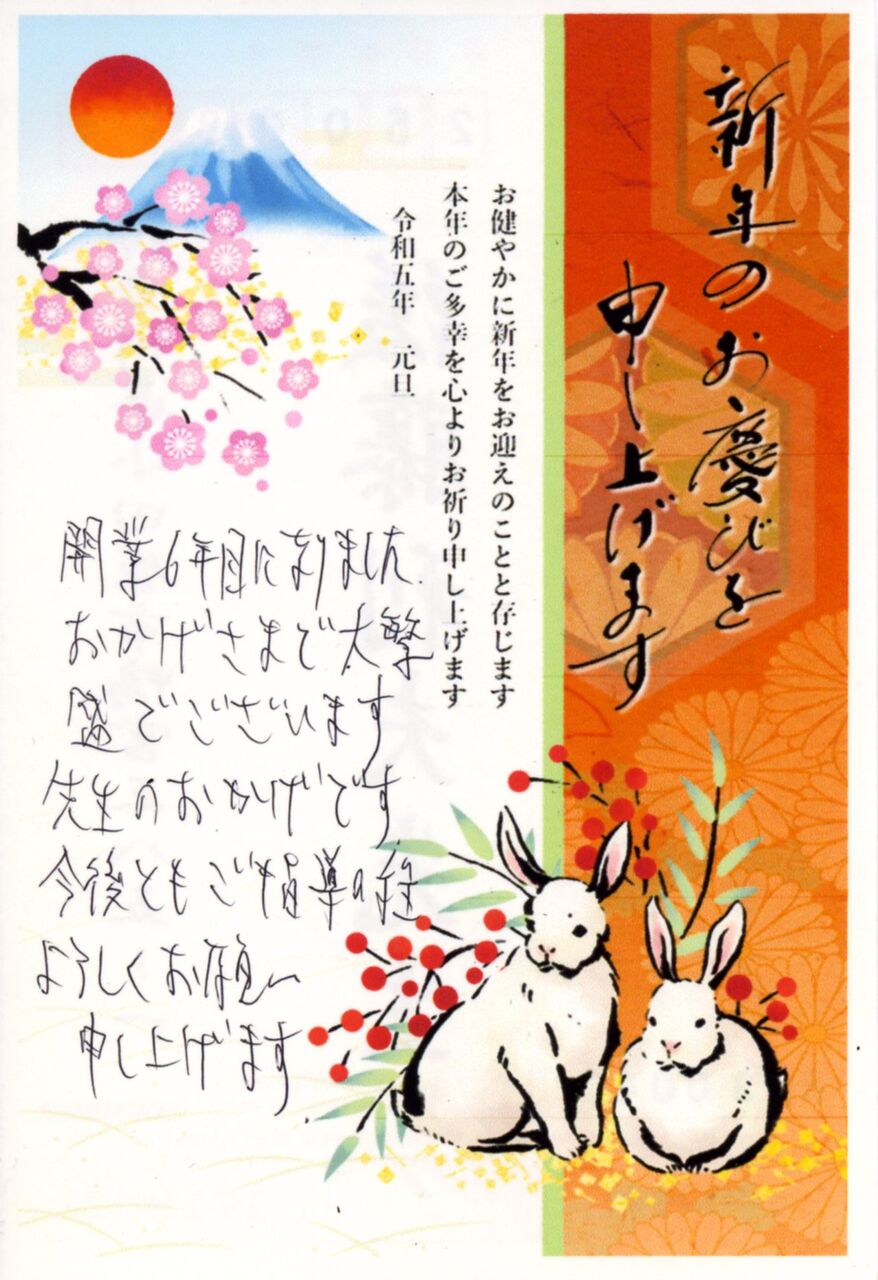 新年のお慶びを
申し上げます
お健やかに新年をお迎えのことと存じます
本年のご多幸を心よりお祈り申し上げます
令和五年　元旦
開業6年目になりました.
おかげさまで大繁
盛でございます
先生のおかげです
今後ともご指導の程
よろしくお願い
申し上げます